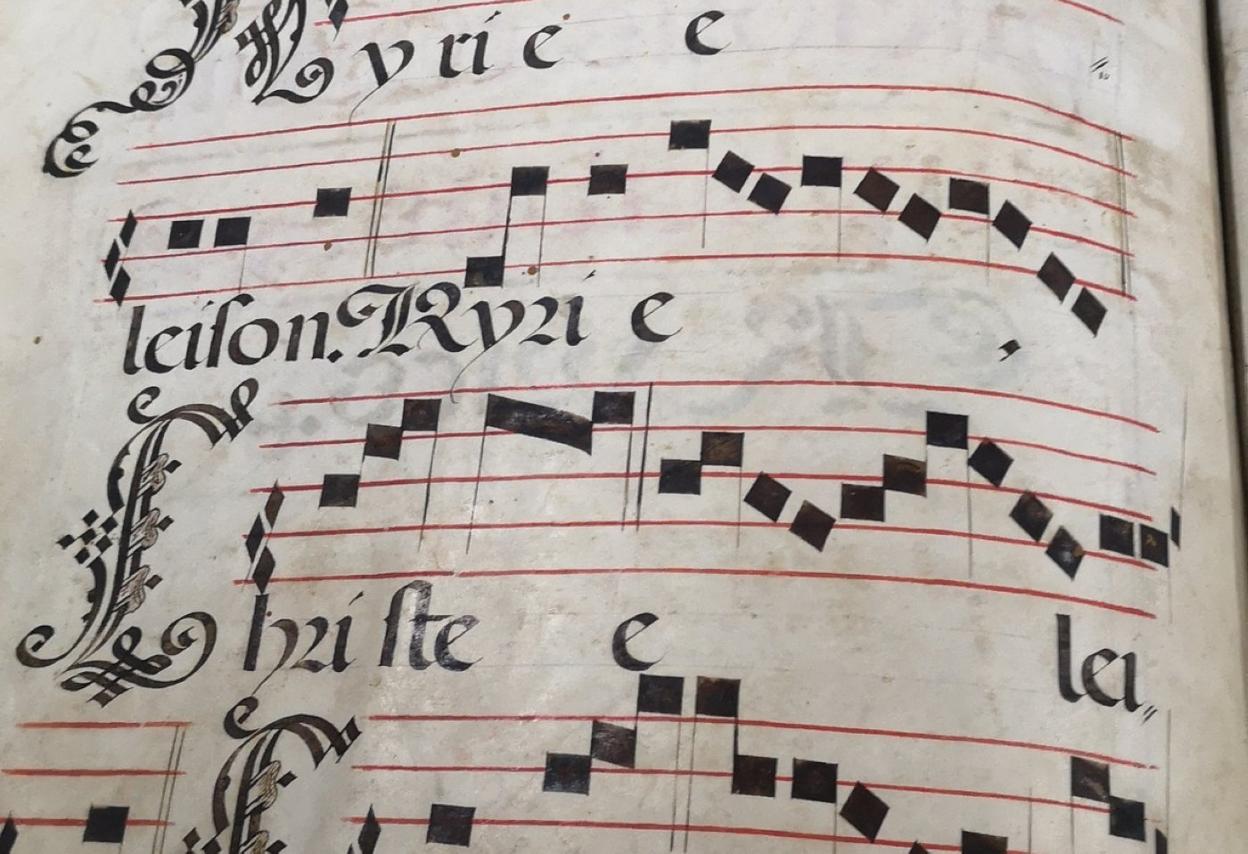 Kyrie e
leiſon. Kyri e
Chriſte e lei